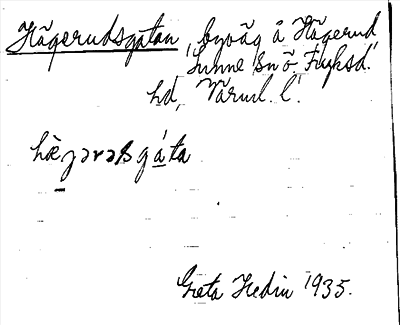 Hägerudsgatan, byväg å Hägerud,
Sunne sn ö. Fryksd.
hd, Värml. l.
hæ̀jərəsgáta
Greta Hedin 1935.